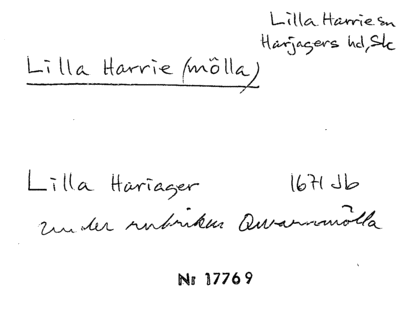 Lilla Harrie sn
Harjagers hd, Sk
Lilla Harrie (mölla)
Lilla Hariager 1671 Jb
under rubriken Qwarnmölla
Nr 17769